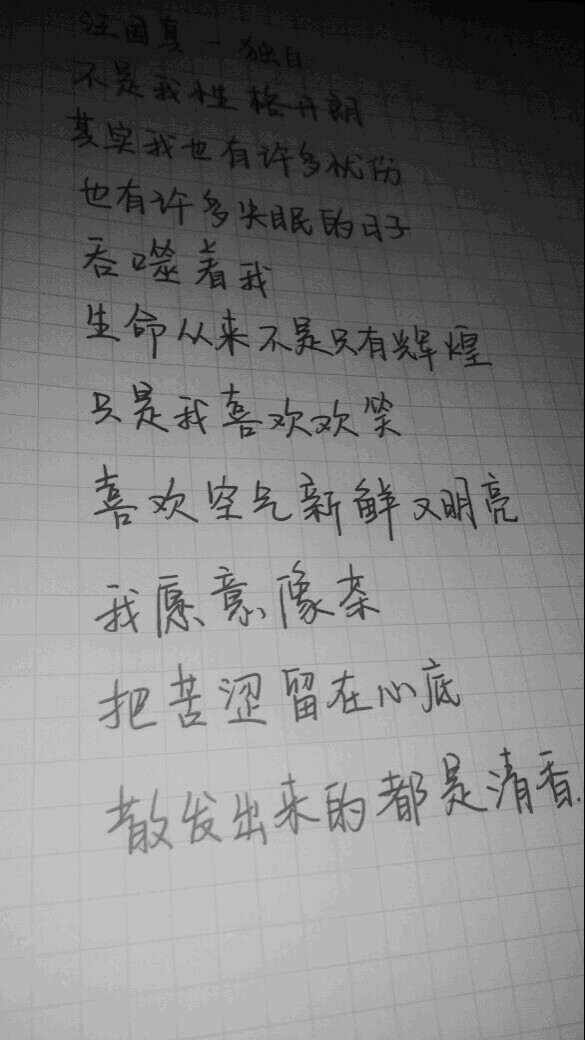 汪国真 - 独白
不是我性格开朗
其实我也有许多忧伤
也有许多失眠的日子
吞噬着我
生命从来不是只有辉煌
只是我喜欢欢笑
喜欢空气新鲜又明亮
我愿意像茶
把苦涩留在心底
散发出来的都是清香.